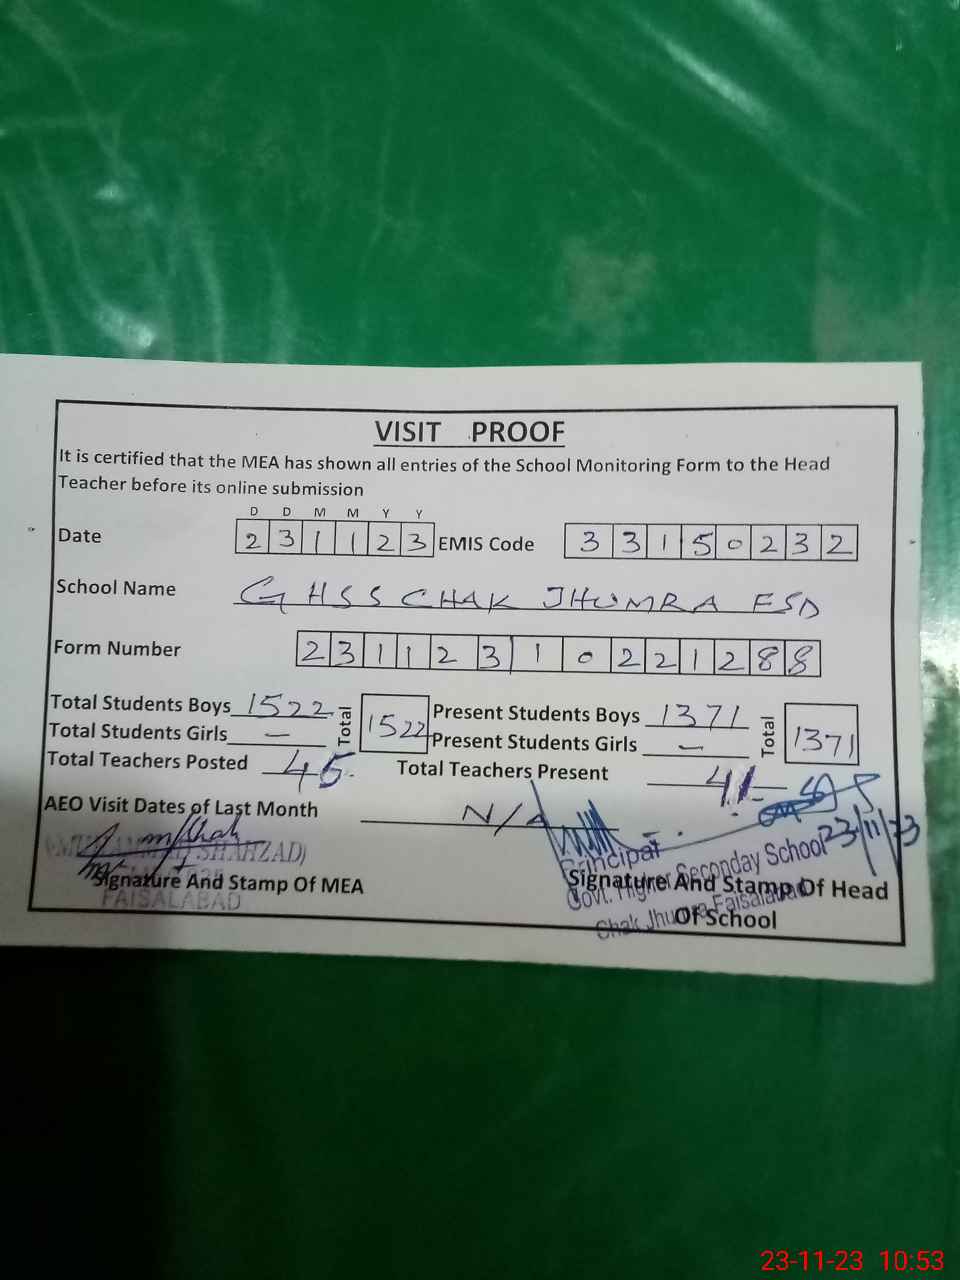 VISIT PROOF
It is certified that the MEA has shown all entries of the School Monitoring Form to the Head
Teacher before its online submission
D D M M Y Y
Date 2 3 1 1 2 3 EMIS Code 3 3 1 5 0 2 3 2
School Name G H S S CHAK JHUMRA FSD
Form Number 2 3 1 1 2 3 1 0 2 2 1 2 8 8
Total Students Boys 1522 Total 1522 Present Students Boys 1371 Total 1371
Total Students Girls — Present Students Girls —
Total Teachers Posted 45 Total Teachers Present 41
AEO Visit Dates of Last Month N/A
23/11/23
SHAHZAD)
Signature And Stamp Of MEA
FAISALABAD
Principal
Govt. Higher Seconday School
Chak Jhumra Faisalabad
Signature And Stamp Of Head
Of School
23-11-23 10:53